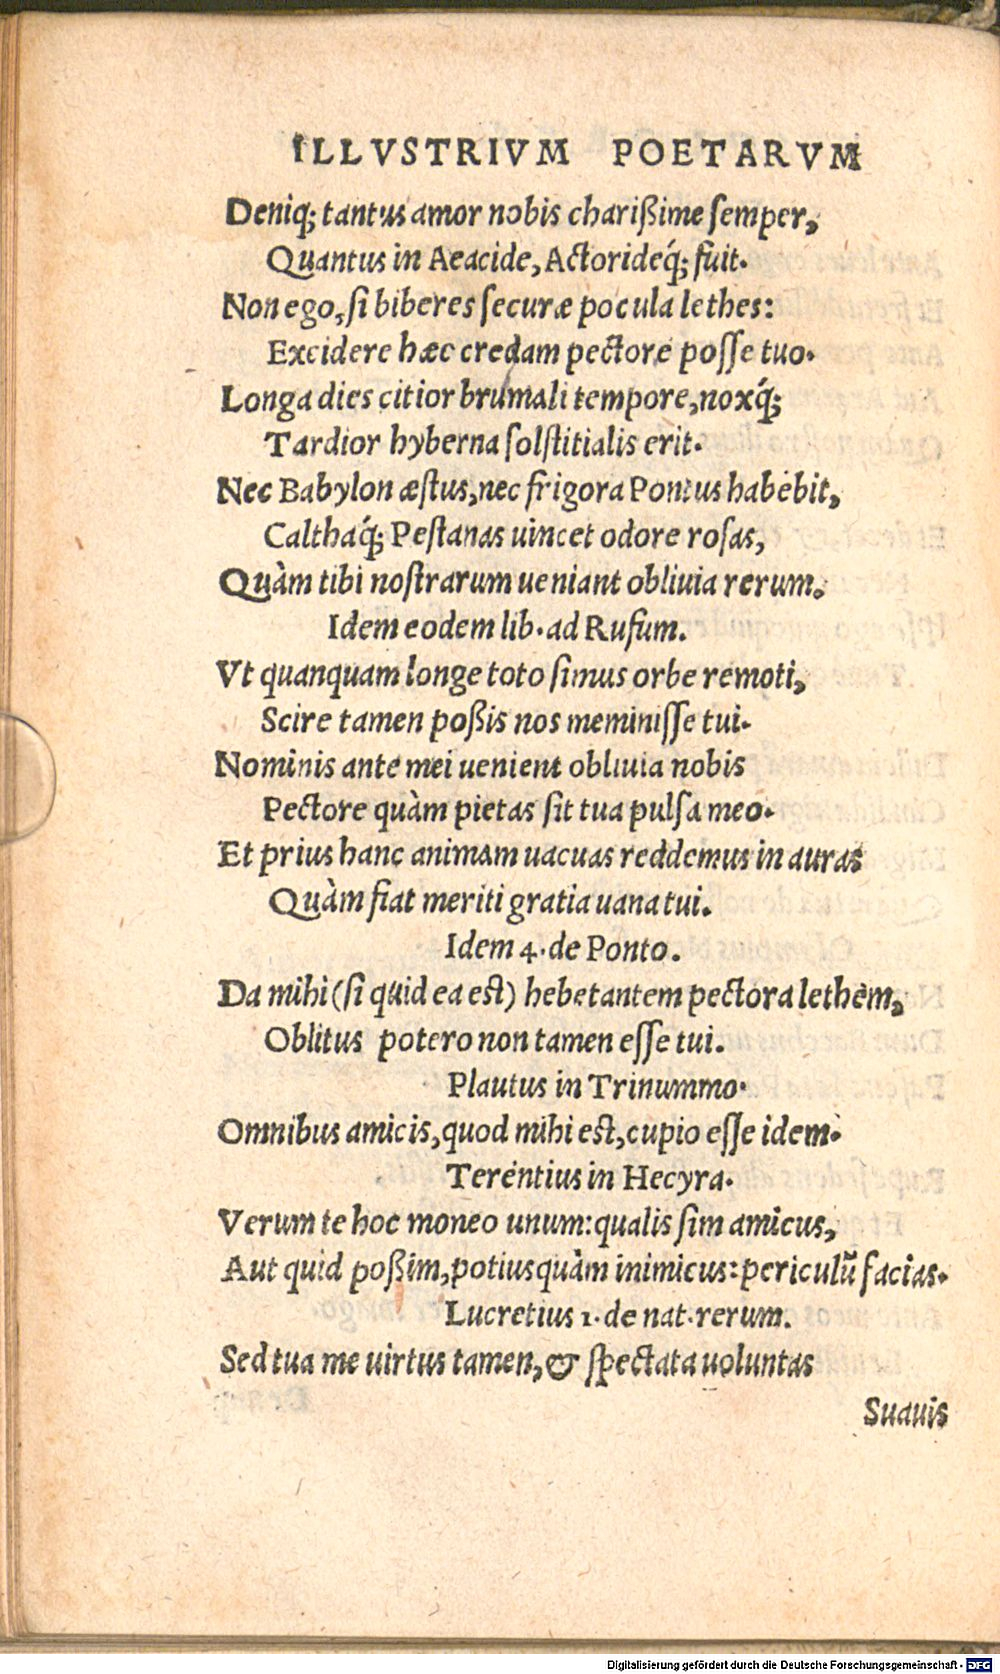 ILLVSTRIVM POETARVM
Deniq; tantus amor nobis charißime ſemper,
Quantus in Aeacide, Actorideq́; fuit.
Non ego, ſi biberes ſecuræ pocula lethes:
Excidere hæc credam pectore poſſe tuo.
Longa dies citior brumali tempore, noxq́;
Tardior hyberna ſolſtitialis erit.
Nec Babylon æſtus, nec frigora Pontus habebit,
Calthaq́; Peſtanas uincet odore roſas,
Quàm tibi noſtrarum ueniant obliuia rerum.
Idem eodem lib. ad Rufum.
Vt quanquam longe toto ſimus orbe remoti,
Scire tamen poßis nos meminiſſe tui.
Nominis ante mei uenient obliuia nobis
Pectore quàm pietas ſit tua pulſa meo.
Et prius hanc animam uacuas reddemus in auras
Quàm fiat meriti gratia uana tui.
Idem 4. de Ponto.
Da mihi (ſi quid ea eſt) hebetantem pectora lethem,
Oblitus potero non tamen eſſe tui.
Plautus in Trinummo.
Omnibus amicis, quod mihi eſt, cupio eſſe idem.
Terentius in Hecyra.
Verum te hoc moneo unum: qualis ſim amicus,
Aut quid poßim, potius quàm inimicus: periculũ facias.
Lucretius 1. de nat. rerum.
Sed tua me uirtus tamen, & ſpectata uoluntas
Suauis
Digitalisierung gefördert durch die Deutsche Forschungsgemeinschaft - DFG